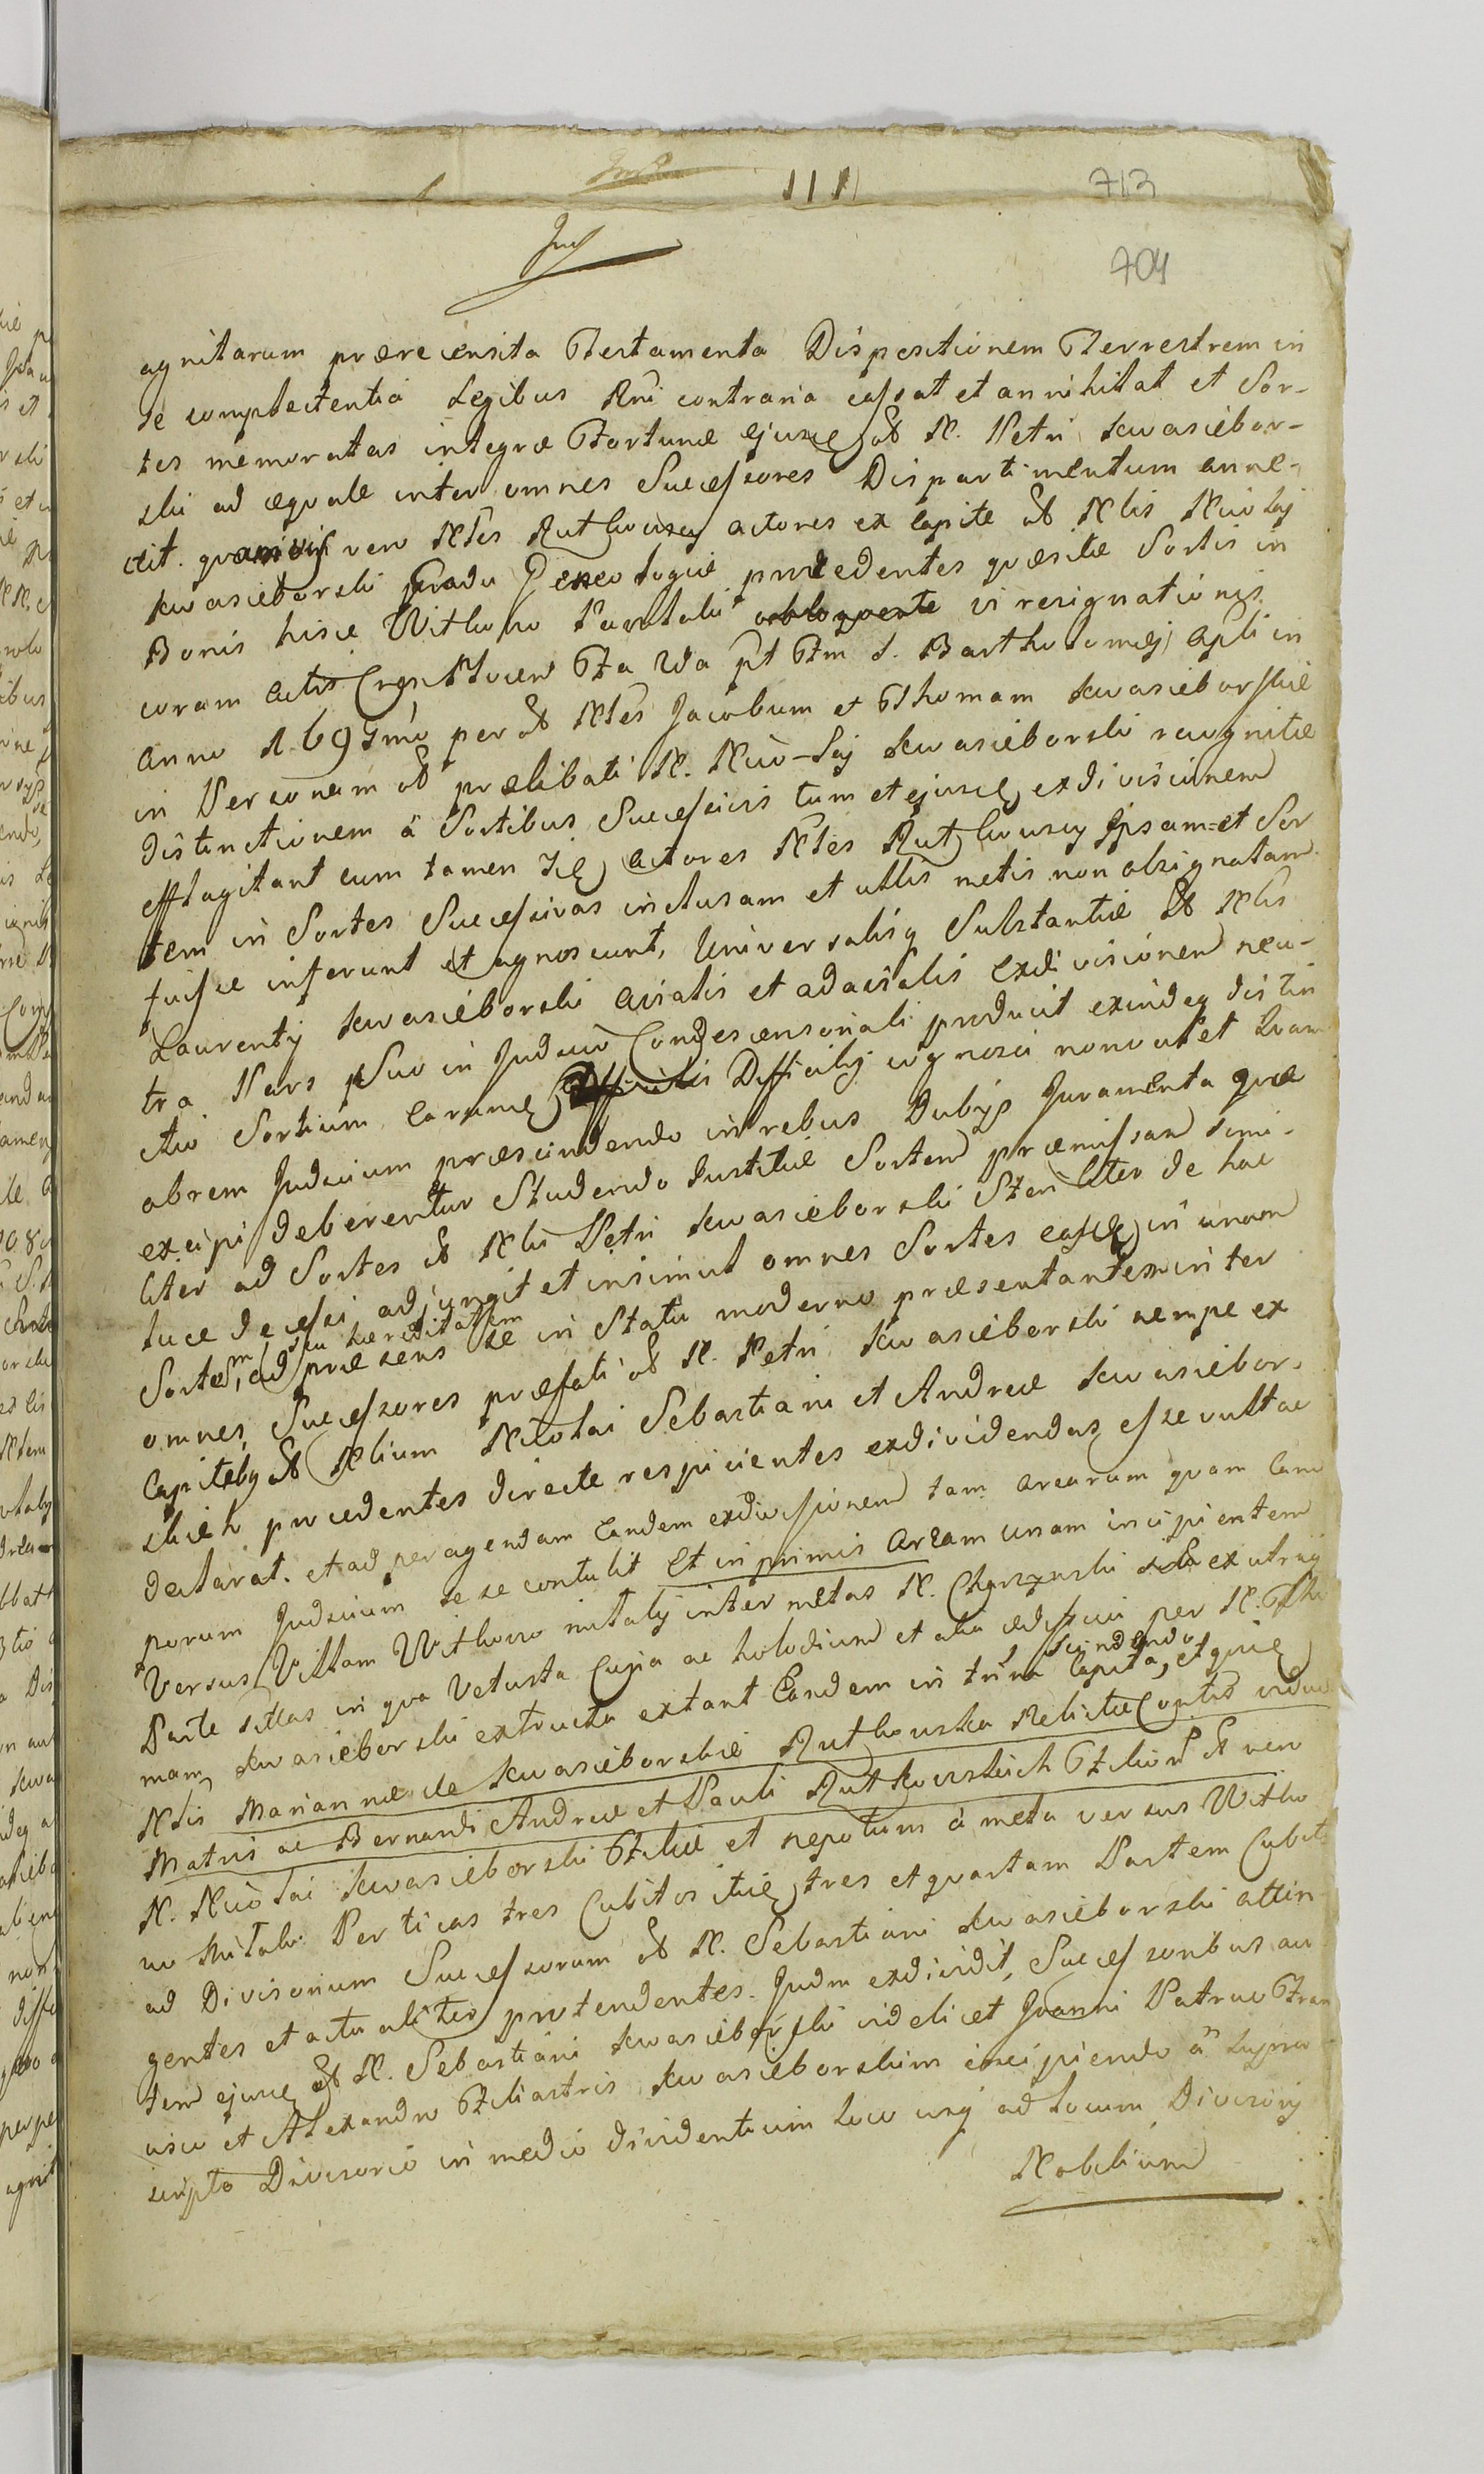 713
704
agnitarum præreciensita Testamenta Dispositionem Terrestrem in
se complectentia Legibus Rni contraria cassat et annihilat et Sor-
tes memoratas integræ Fortunæ ejusce N. Petri Kwasiebor-
ski ad æquale inter omnes Successores Dispartimentum anne-
ctit. quamvis vero Nles Rutkowscy actores ex Capite Nlis Nicolaj
Kwasieborski Gradu Geneologiæ procedentes quæsitæ Sortis in
Bonis hisce Witkowo vi resignationis
coram Actis Fa 2da pt Fm S. Bartholomæj Apli in
Anno per Nles Jacobum et Thomam Kwasieborskie
in Personam prælibati N. Nico-laj Kwasieborski recognitæ
distinctionem à Sortibus Successivis tum et ejusce exdivisionem
efflagitant cum tamen Actores Nles Rutkowscy Ipsam-et Sor
tem in Sortes Successivas inclusam et ullis metis non obsignatam
fuisse inferunt et agnoscunt, Universalisq Substantiæ Nlis
Laurentij Kwasieborski aviatis et adavialis exdivisionem neu-
tra Pars Suo in Judicio Condescensoriali producit exindeq distin
ctio Sortium earumce Difficilis Difficiliq cognosci non valet Quam
abrem Judicium præscindendo in rebus Dubijs Juramenta quæ
excipi deberentur Studendo Justitiæ Sortem præmissam simi-
liter ad Sortes Nlis Petri Kwasieborski Steriliter de hac
luce decessi adjungit et insimul omnes Sortes easce in unam
seu hæreditatem
Sortem, ad præsens se in Statu moderno præsentantem inter
omnes Successores præfati N. Petri Kwasieborski nempe ex
Capitebq Nlium Nicolai Sebastiani et Andreæ Kwasiebor-
skich procedentes directe respicientes exdividendas esse vult ac
declarat. et ad peragendam Eandem exdivisionem tam arearum quam Cam
porum Judicium se se contulit Et in primis Aream unam incipientem
Versus Villam Witkowo inter metas N. ex utraq
Parte sitas in qua Vetusta Curia ac et alia ædificia per N. Tho
scindendo
mam Kwasieborski extructa extant Eandem in trina Capita, et quie
Nlis Mariannæ de Kwasieborskie Rutkowska Relictæ viduæ
Matris ac Bernardi Andreæ et Pauli Rutkowskich Filior vero
N. Nicolai Kwasieborski Filiæ et nepotum à meta versus Witko
wo Perticas tres Cubitos tres et quartam Partem Cubiti
ad Divisorium Successorum N. Sebastiani Kwasieborski attin
gentes et actualiter protendentes. Judm exdividit, Successoribus au
tem ejusce N. Sebastiani Kwasieborski videlicet Joanni Patruo Fran
cisco et Alexandro Filiastris Kwasieborskim incipiendo à supra
scripto Divisorio in medio dividentium loco usq ad locum Divisorij
Nobilium